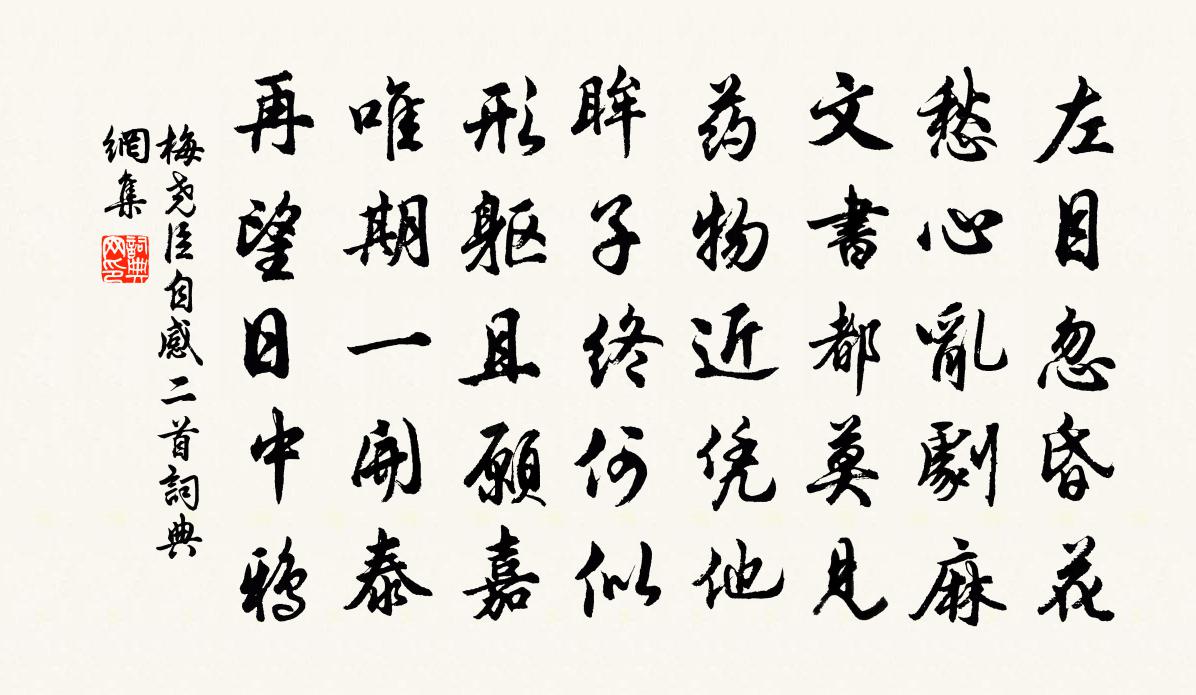 左目忽昏花
愁心亂劇麻
文書都莫見
药物近凭他
眸子终何似
形躯且願嘉
唯期一開泰
再望日中鸦
梅尧臣自感二首詞典
網集
詞典
网印